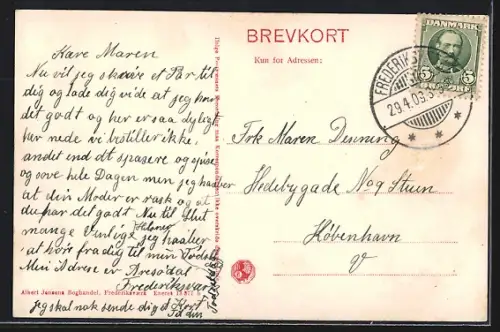 BREVKORT
Kun for Adressen:
DANMARK
5 5
ØRE
FREDERIKS
29.4.09.
Kære Maren
Nu vil jeg skrive et Par til
dig og lade dig vide at jeg har
det godt og her er saa dejligt
her nede vi bestiller ikke
andet end at spasere og spise
og sove hele Dagen men jeg haaber
at din Moder er rask og at
du har det godt Nu til Slut
mange Venlige Hilsner jeg haaber
at høre fra dig til min Fødsels
Min Adresse er Arresødal
Frederiksværk
jeg skal nok sende dig et Kort
Frk Maren Denning
Hedebygade No 9 Stuen
København
V
Albert Jansens Boghandel, Frederiksværk. Eneret